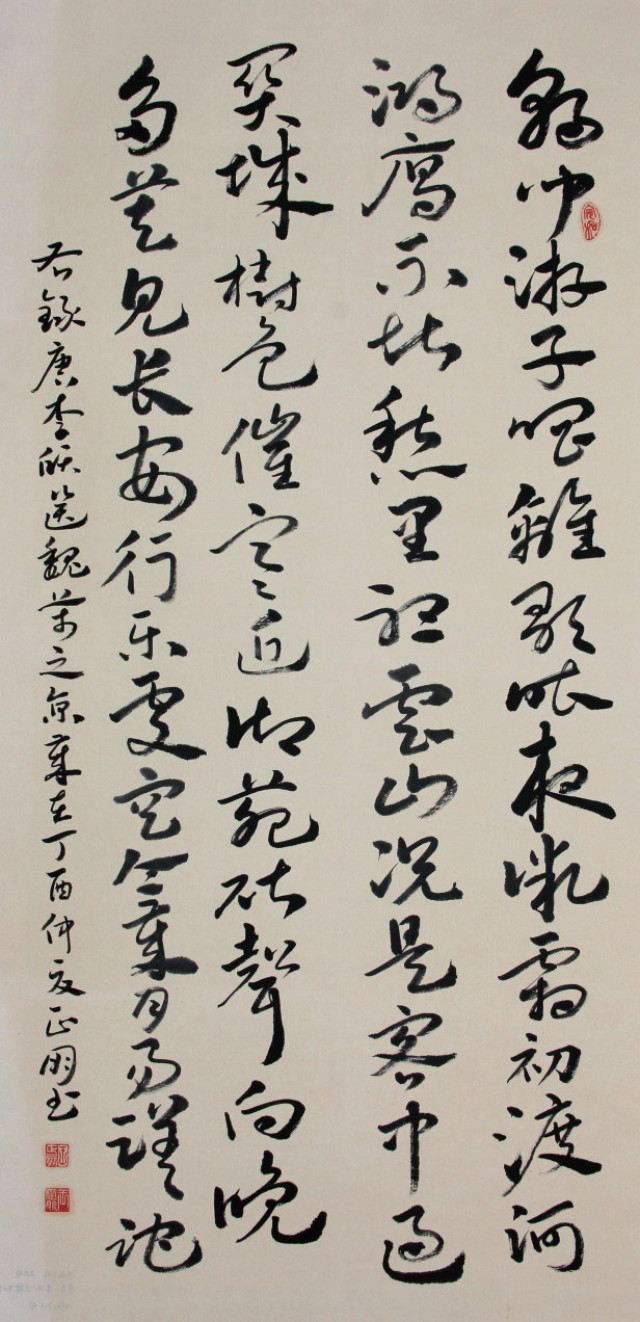 朝闻游子唱離歌昨夜微霜初渡河
鴻鴈不堪愁里听雲山况是客中過
關城樹色催寒近御苑砧聲向晚
多莫见长安行乐处空令歲月易蹉跎
右錄唐李颀送魏萬之京歲在丁酉仲夏正明书